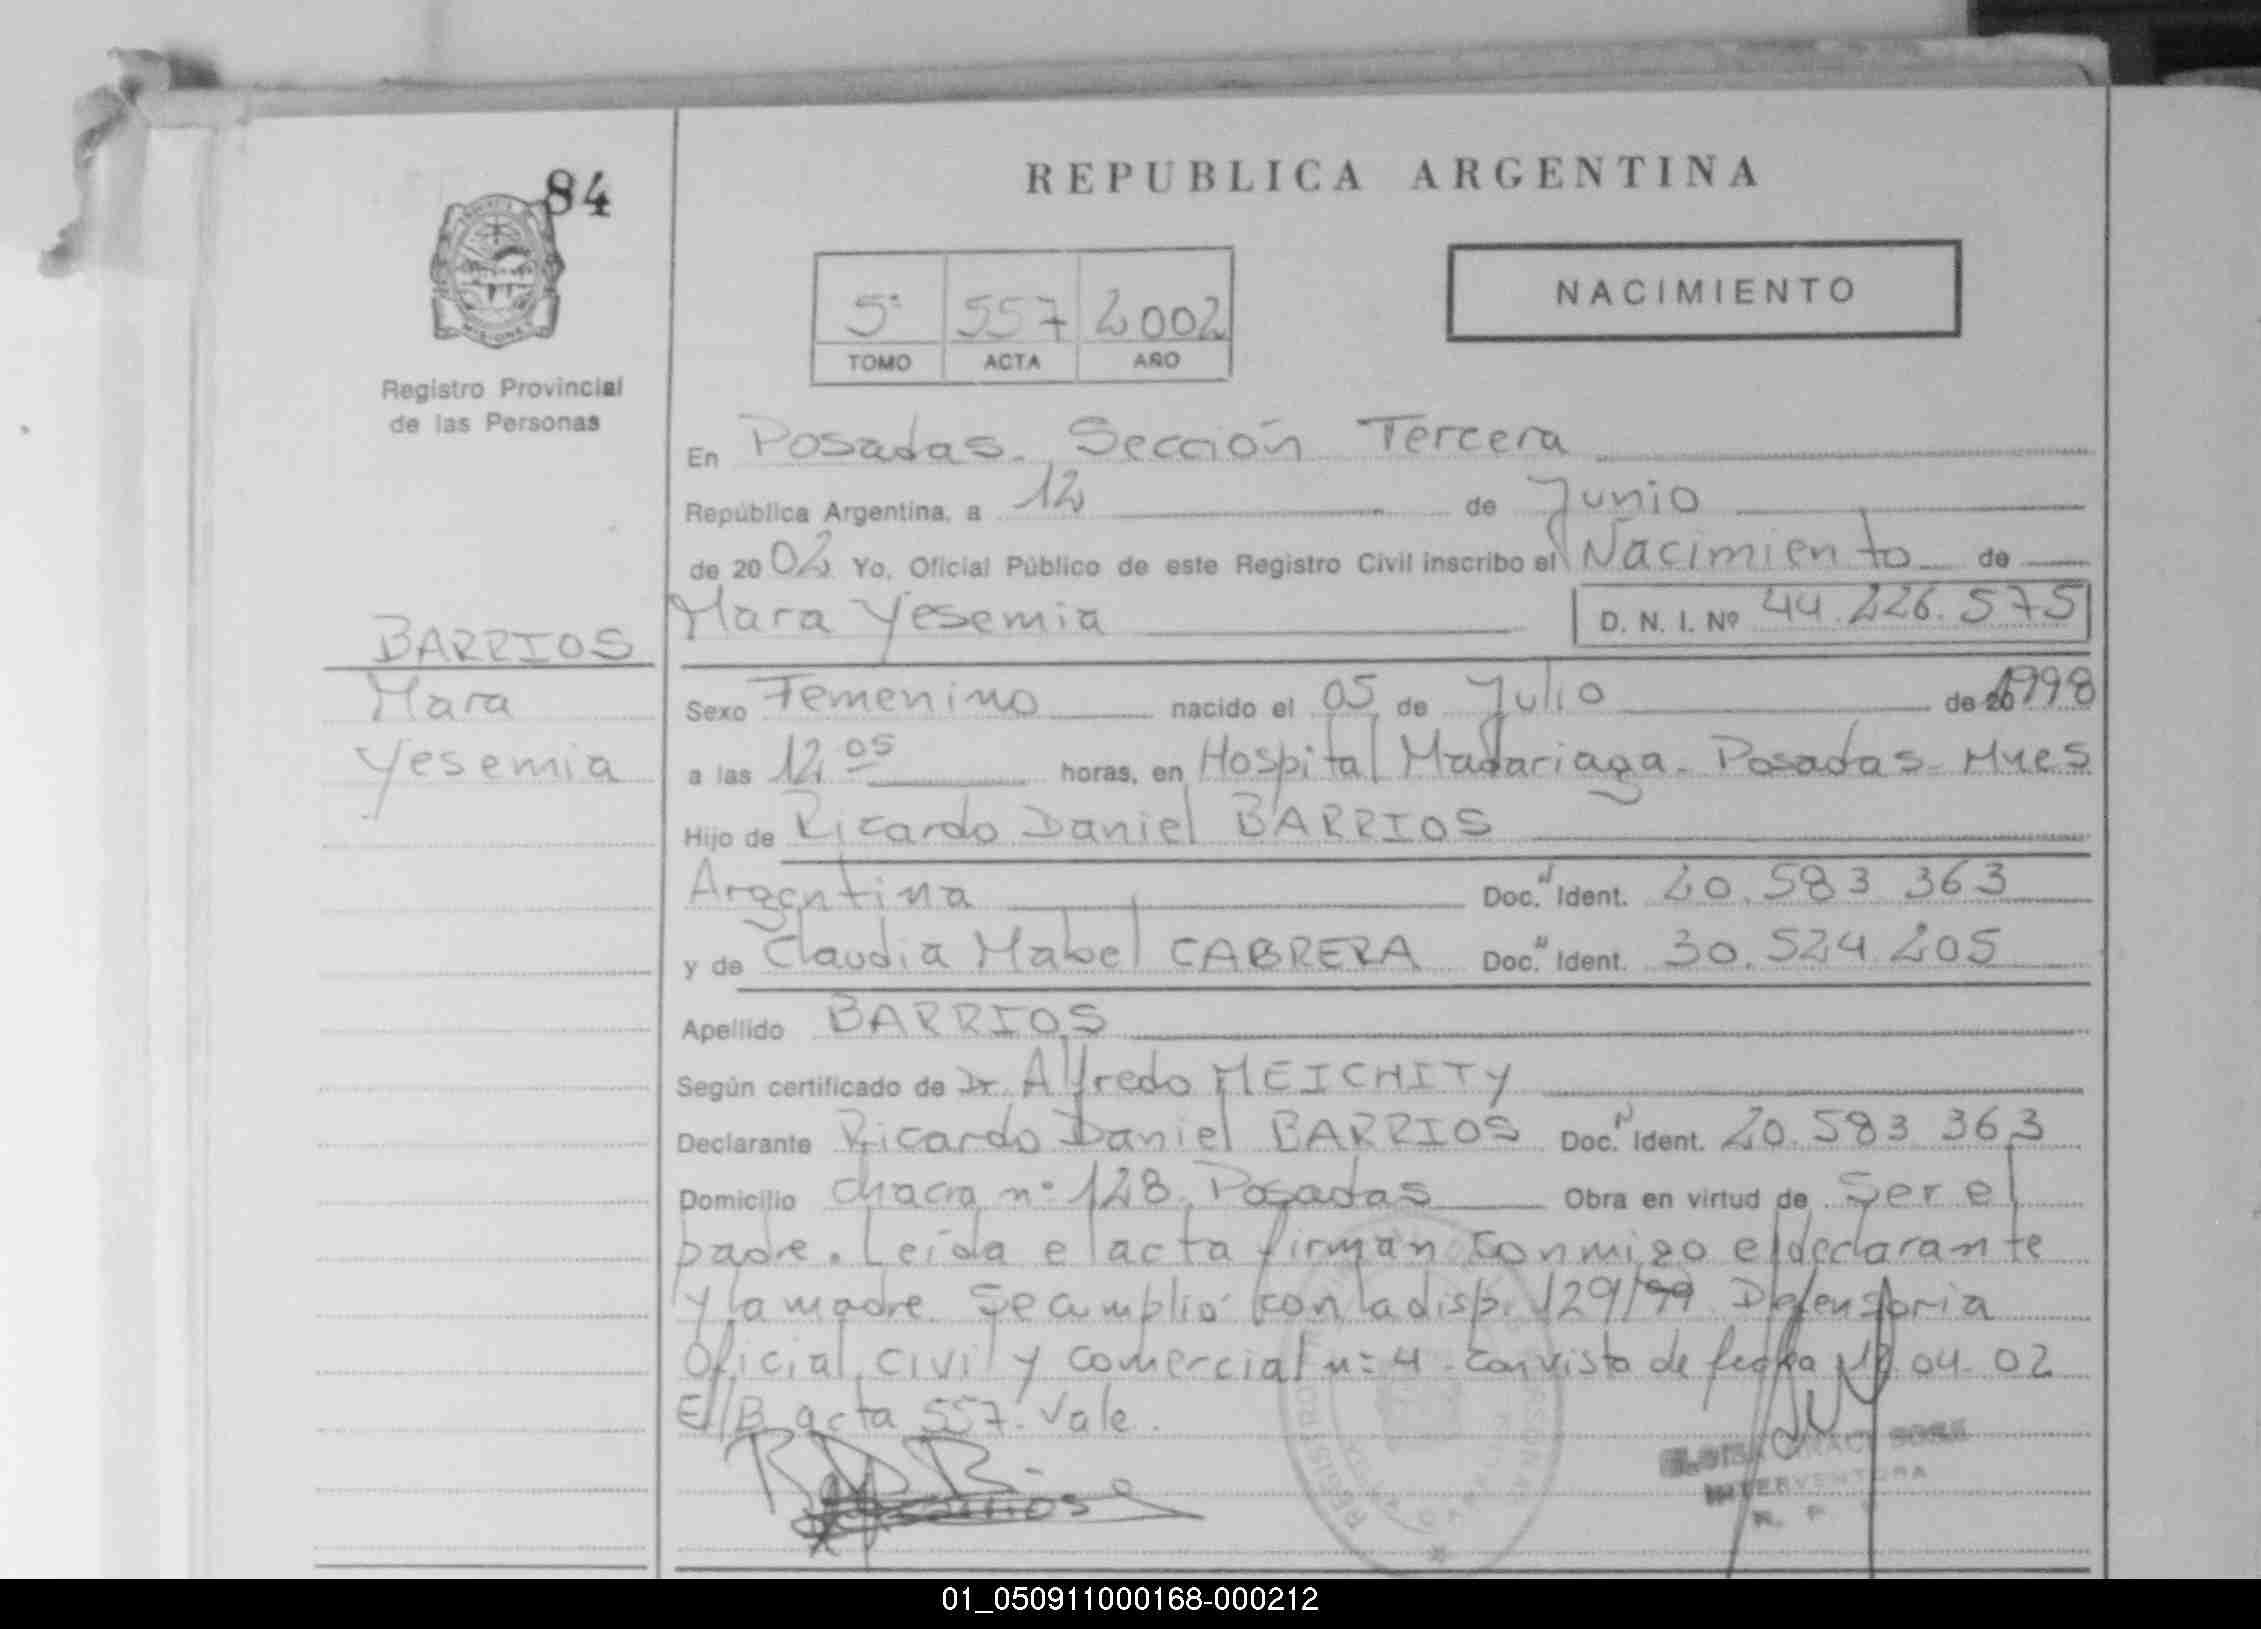 84
REPUBLICA ARGENTINA
NACIMIENTO
5º 557 2002
TOMO ACTA AÑO
Registro Provincial
de las Personas
En Posadas. Sección Tercera
República Argentina, a 12 de Junio
de 2002 Yo, Oficial Público de este Registro Civil inscribo el Nacimiento de
Mara Yesemia D. N. I. Nº 44.226.575
BARRIOS
Mara
Yesemia
Sexo Femenino nacido el 05 de Julio de 1998
a las 12 05 horas, en Hospital Madariaga. Posadas. Mnes
Hijo de Ricardo Daniel BARRIOS
Argentina Doc. Ident. 20.583 363
y de Claudia Mabel CABRERA Doc. Ident. 30.524.205
Apellido BARRIOS
Según certificado de Dr. Alfredo MEICHITY
Declarante Ricardo Daniel BARRIOS Doc. Ident. 20.583 363
Domicilio chacra nº 128. Posadas Obra en virtud de Ser el
padre. Leída el acta firman conmigo el declarante
y la madre. Se cumplió con la disp. 129/99. Defensoria
Oficial, civil y comercial n= 4. con vista de fecha 04-02
E//B acta 557. Vale.
INTERVENTORA
01_050911000168-000212